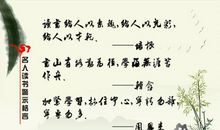 读书给人以乐趣，给人以光彩，
给人以才干。
——培根
书山有路勤为径，学海无涯苦
作舟。
——韩愈
加紧学习，抓住中心，宁精勿杂，
宁专勿多。
——周恩来
名人读书启示格言